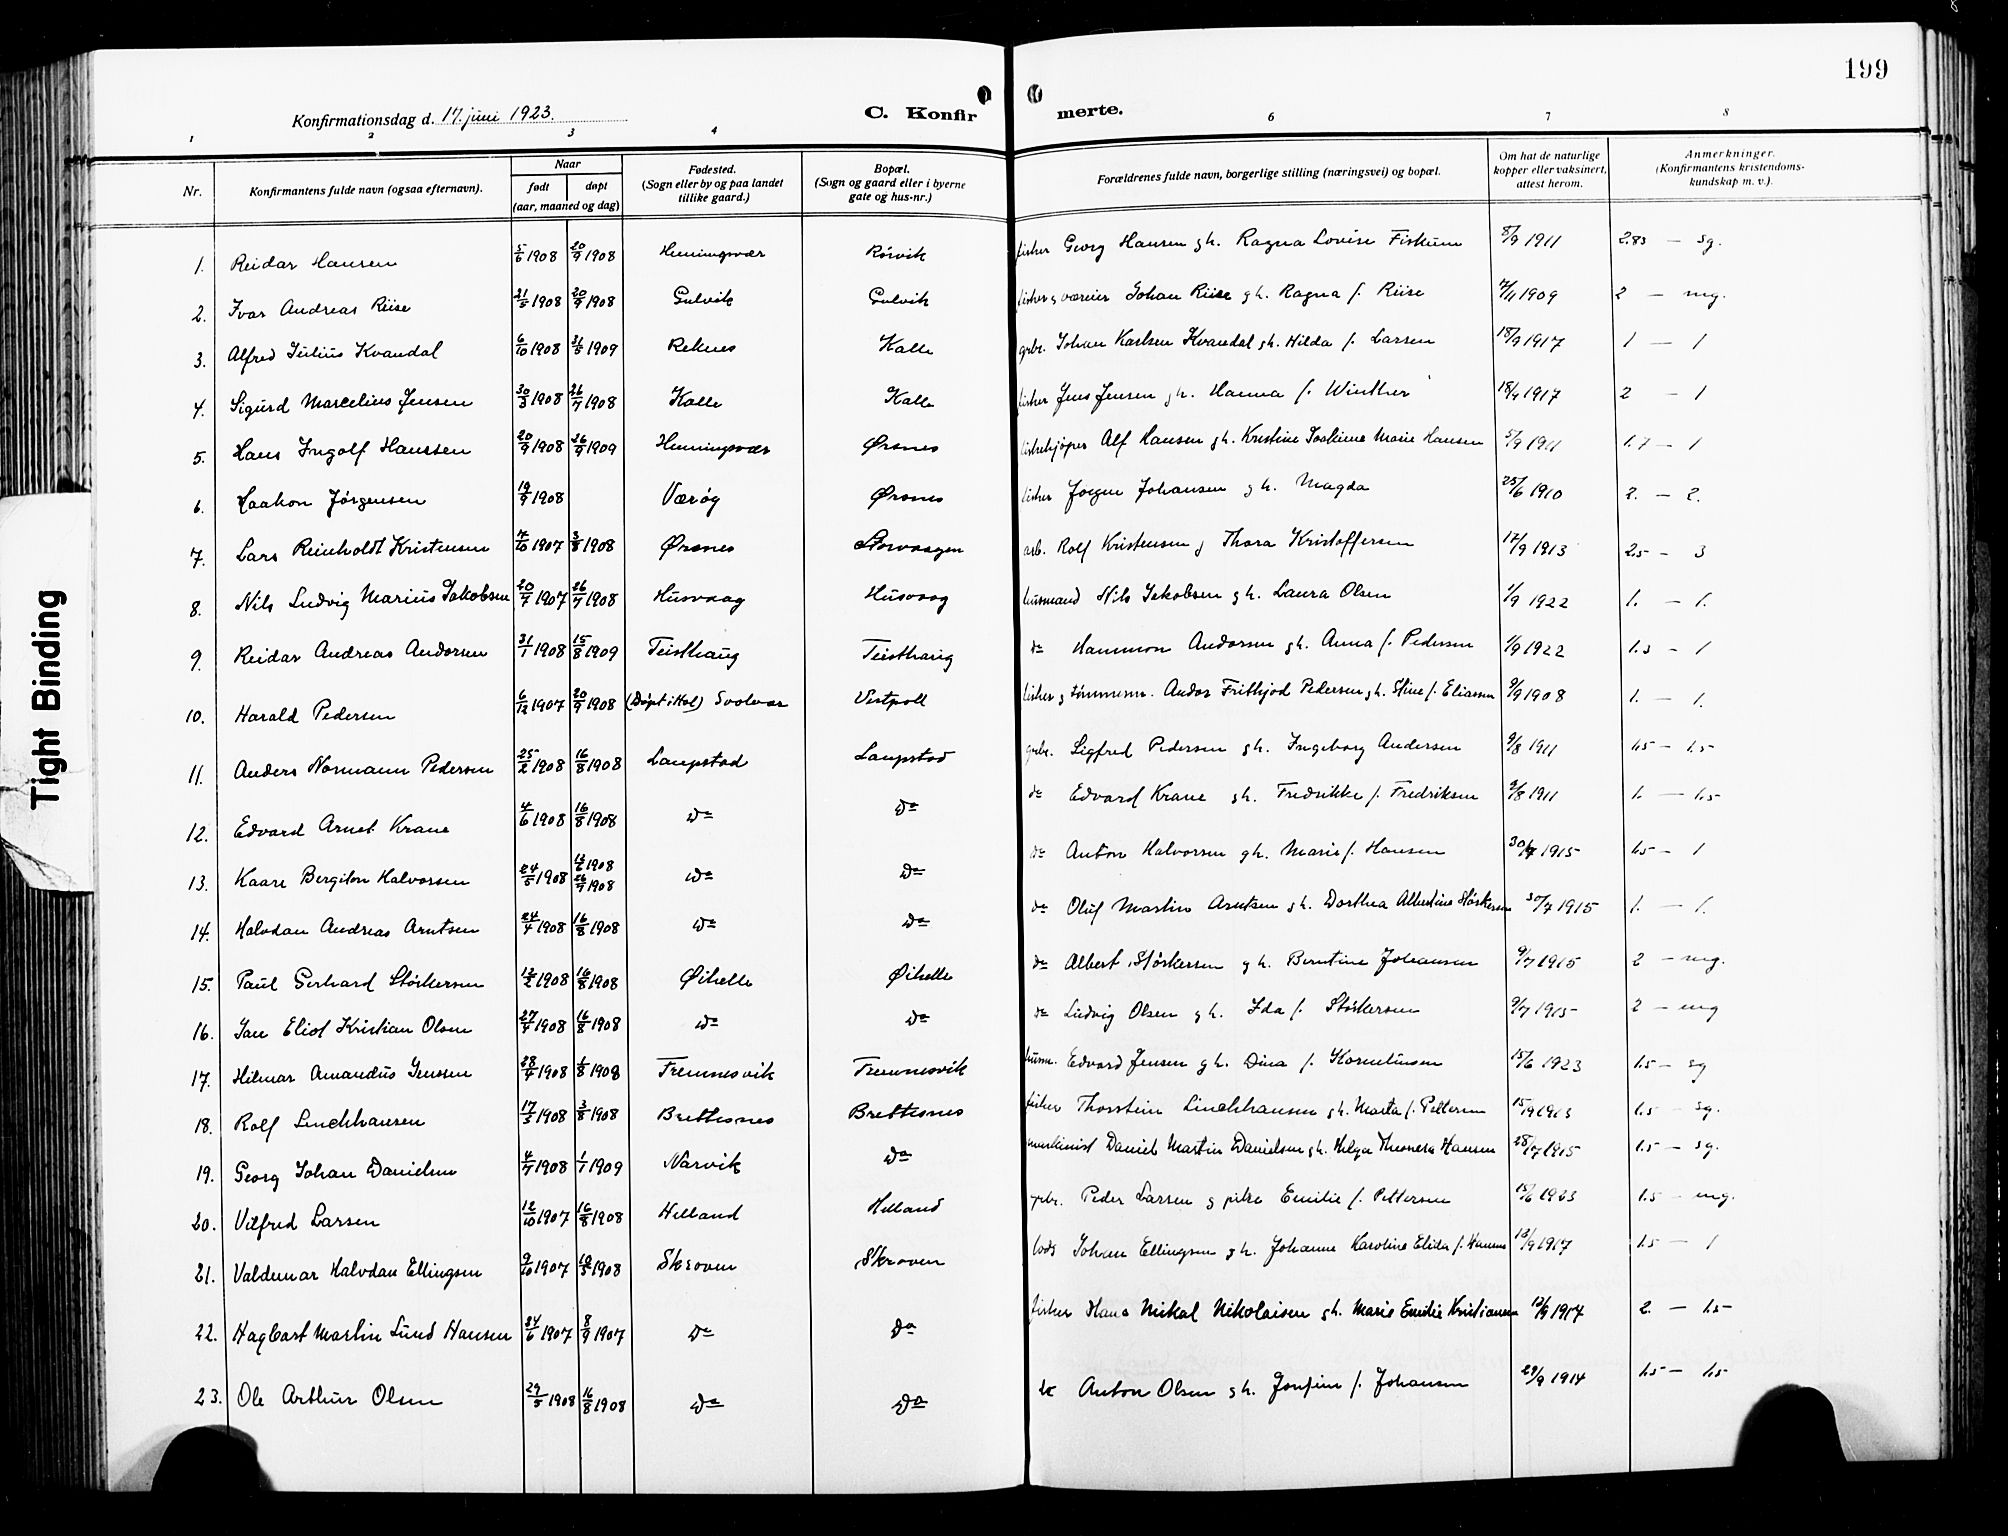 8
199
Konfirmationsdag d. 17. juni 1923.
C. Konfirmerte.
1 2 3 4 6 7 8
Nr. Konfirmantens fulde navn (ogsaa efternavn). Naar født døpt (aar, maaned og dag) Fødested. (Sogn eller by og paa landet tillike gaard.) Bopæl. (Sogn og gaard eller i byerne gate og hus-nr.) Forældrenes fulde navn, borgerlige stilling (næringsvei) og bopæl. Om hat de naturlige kopper eller vaksinert, attest herom. Anmerkninger. (Konfirmantens kristendomskundskap m. v.).
1. Reidar Hansen 5/6 1908 20/9 1908 Henningsvær Rørvik fisker Georg Hansen g h. Ragna Lovise Fiskum 8/9 1911 2.83 — sg.
2. Ivar Andreas Riise 21/5 1908 20/9 1908 Gulvik Gulvik fisker g væreier Johan Riise g h. Ragna f. Riise 1909 2 — mg.
3. Alfred Julius Kvandal 6/10 1908 31/5 1909 Reknes Kalle grbr. Johan Karlsen Kvandal g h. Hilda f. Larsen 18/9 1917 1 — 1
4. Sigurd Marcelius Jensen 30/3 1908 26/7 1908 Kalle Kalle fisker Jens Jensen g h. Hanna f. Winther 18/4 1917 2 — 1
5. Hans Ingolf Hanssen 20/9 1908 26/9 1909 Henningsvær Ørsnes fiskekjøper Alf Hansen g h. Kristine Joakime Marie Hansen 5/9 1911 1.7 — 1
6. Haakon Jørgensen 19/9 1908 Værøy Ørsnes fisker Jørgen Johansen g h. Magda 25/6 1910 2. — 2.
7. Lars Reinholdt Kristensen 4/10 1907 3/8 1908 Ørsnes Storvaagen arb. Rolf Kristensen g Thora Kristoffersen 17/9 1913 2.5 — 3
8. Nils Ludvig Marius Jakobsen 20/7 1907 26/7 1908 Husvaag Husvaag husmand Nils Jakobsen g h. Laura Olsen 1/9 1922 1. — 1.
9. Reidar Andreas Andorsen 31/1 1908 15/8 1909 Teisthaug Teisthaug do Hammon Andorsen g h. Anna f. Pedersen 1/9 1922 1.3 — 1
10. Harald Pedersen 6/12 1907 20/9 1908 (Døpt i Hol) Svolvær Vestpoll fisker g tømmerm. Andor Frithjod Pedersen g h. Stine f. Eliassen 9/9 1908 1. — 1.
11. Anders Normann Pedersen 25/2 1908 16/8 1908 Laupstad Laupstad grbr. Sigfred Pedersen g h. Ingeborg Andersen 9/8 1911 1.5 — 1.5
12. Edvard Arnet Krane 4/6 1908 16/8 1908 do do do Edvard Krane g h. Fredrikke f. Fredriksen 9/8 1911 1. — 1.5
13. Kaare Bergiton Halvorsen 24/5 1908 1908 26/7 1908 do do do Anton Halvorsen g h. Marie f. Hansen 30/7 1915 1.5 — 1
14. Halvdan Andreas Arntsen 24/4 1908 16/8 1908 do do do Oluf Martin Arntsen g h. Dorthea Albertine Størkersen 30/7 1915 1. — 1.
15. Paul Gerhard Størkersen 13/2 1908 16/8 1908 Øihelle Øihelle do Albert Størkersen g h. Berntine Johansen 9/7 1915 2 — mg.
16. Jan Eliot Kristian Olsen 27/4 1908 16/8 1908 do do do Ludvig Olsen g h. Ida f. Størkersen 9/7 1915 2 — mg
17. Hilmar Amandus Jenssen 28/4 1908 1/8 1908 Fremnesvik Fremnesvik husm. Edvard Jensen g h. Dina f. Korneliussen 15/6 1923 1.5 — sg
18. Rolf Linchhausen 17/5 1908 3/8 1908 Brettesnes Brettesnes fisker Thorstein Linchhausen g h. Marta f. Pettersen 1.5 — sg.
19. Georg Johan Danielsen 4/7 1908 1/1 1909 Narvik do maskinist Daniel Martin Danielsen g h. Helga Theonera Hansen 28/7 1915 1.5 — sg.
20. Vilfred Larsen 12/10 1907 16/8 1908 Helland Helland grbr. Peder Larsen g pike Emilie f. Pettersen 15/6 1923 1.5 — mg.
21. Valdemar Halvdan Ellingsen 9/10 1907 10/5 1908 Skroven Skroven lods Johan Ellingsen g h. Johanne Karoline Elida f. Hansen 12/9 1917 1.5 — 1
22. Hagbart Martin Lund Hansen 24/6 1907 8/9 1907 do do fisker Hans Mikal Nikolaisen g h. Marie Emilie Kristiansen 12/9 1917 2. — 1.5
23. Ole Arthur Olsen 29/5 1908 16/8 1908 do do do Anton Olsen g h. Josefine f. Johansen 29/9 1914 1.5 — 1.5
Tight Binding